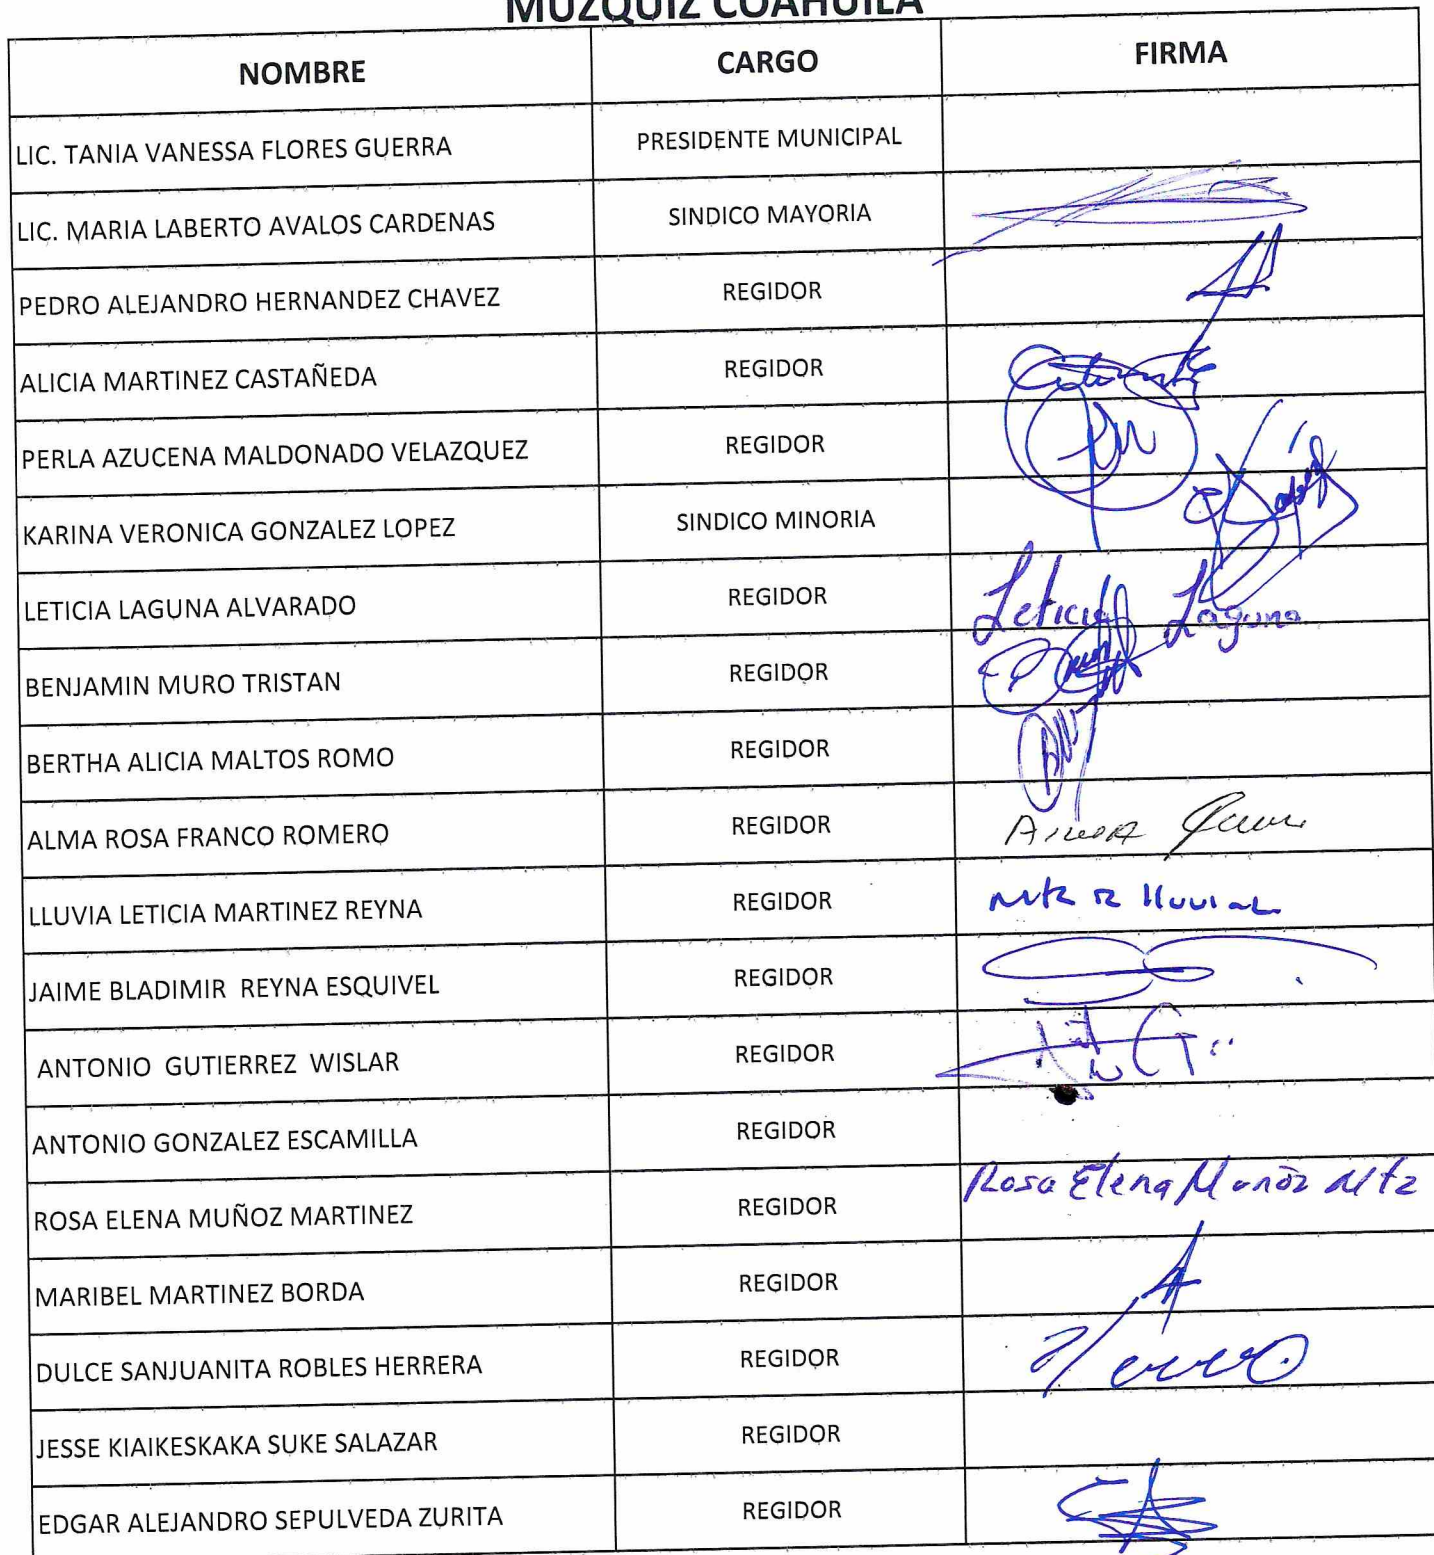 MUZQUIZ COAHUILA
NOMBRE CARGO FIRMA
LIC. TANIA VANESSA FLORES GUERRA PRESIDENTE MUNICIPAL
LIC. MARIA LABERTO AVALOS CARDENAS SINDICO MAYORIA
PEDRO ALEJANDRO HERNANDEZ CHAVEZ REGIDOR
ALICIA MARTINEZ CASTAÑEDA REGIDOR
PERLA AZUCENA MALDONADO VELAZQUEZ REGIDOR
KARINA VERONICA GONZALEZ LOPEZ SINDICO MINORIA
LETICIA LAGUNA ALVARADO REGIDOR Leticia Laguna
BENJAMIN MURO TRISTAN REGIDOR
BERTHA ALICIA MALTOS ROMO REGIDOR
ALMA ROSA FRANCO ROMERO REGIDOR
LLUVIA LETICIA MARTINEZ REYNA REGIDOR
JAIME BLADIMIR REYNA ESQUIVEL REGIDOR
ANTONIO GUTIERREZ WISLAR REGIDOR
ANTONIO GONZALEZ ESCAMILLA REGIDOR
ROSA ELENA MUÑOZ MARTINEZ REGIDOR Rosa Elena Muñoz Mtz
MARIBEL MARTINEZ BORDA REGIDOR
DULCE SANJUANITA ROBLES HERRERA REGIDOR
JESSE KIAIKESKAKA SUKE SALAZAR REGIDOR
EDGAR ALEJANDRO SEPULVEDA ZURITA REGIDOR